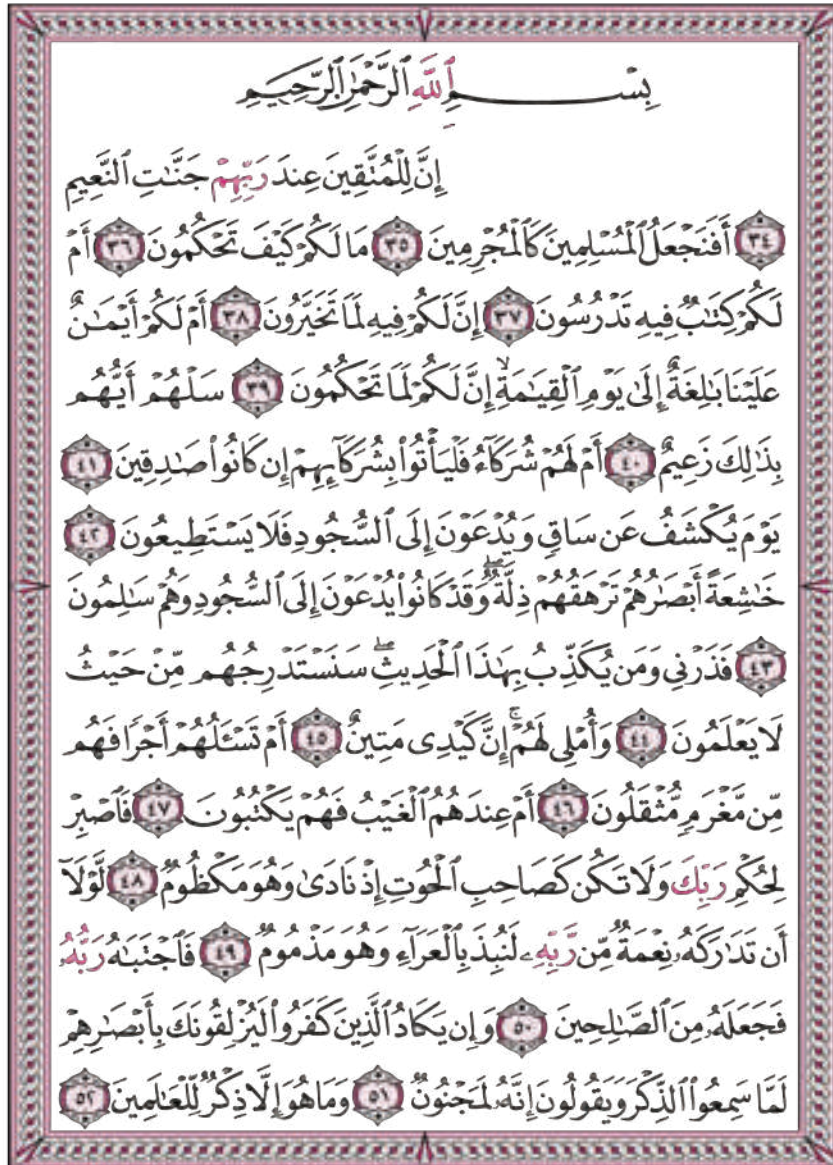 بِسْمِ ٱللَّهِ ٱلرَّحْمَٰنِ ٱلرَّحِيمِ
إِنَّ لِلْمُتَّقِينَ عِندَ رَبِّهِمْ جَنَّٰتِ ٱلنَّعِيمِ
٣٤ أَفَنَجْعَلُ ٱلْمُسْلِمِينَ كَٱلْمُجْرِمِينَ ٣٥ مَا لَكُمْ كَيْفَ تَحْكُمُونَ ٣٦ أَمْ
لَكُمْ كِتَٰبٌ فِيهِ تَدْرُسُونَ ٣٧ إِنَّ لَكُمْ فِيهِ لَمَا تَخَيَّرُونَ ٣٨ أَمْ لَكُمْ أَيْمَٰنٌ
عَلَيْنَا بَٰلِغَةٌ إِلَىٰ يَوْمِ ٱلْقِيَٰمَةِۙ إِنَّ لَكُمْ لَمَا تَحْكُمُونَ ٣٩ سَلْهُمْ أَيُّهُم
بِذَٰلِكَ زَعِيمٌ ٤٠ أَمْ لَهُمْ شُرَكَآءُ فَلْيَأْتُوا۟ بِشُرَكَآئِهِمْ إِن كَانُوا۟ صَٰدِقِينَ ٤١
يَوْمَ يُكْشَفُ عَن سَاقٍ وَيُدْعَوْنَ إِلَى ٱلسُّجُودِ فَلَا يَسْتَطِيعُونَ ٤٢
خَٰشِعَةً أَبْصَٰرُهُمْ تَرْهَقُهُمْ ذِلَّةٌۖ وَقَدْ كَانُوا۟ يُدْعَوْنَ إِلَى ٱلسُّجُودِ وَهُمْ سَٰلِمُونَ
٤٣ فَذَرْنِى وَمَن يُكَذِّبُ بِهَٰذَا ٱلْحَدِيثِۖ سَنَسْتَدْرِجُهُم مِّنْ حَيْثُ
لَا يَعْلَمُونَ ٤٤ وَأُمْلِى لَهُمْۚ إِنَّ كَيْدِى مَتِينٌ ٤٥ أَمْ تَسْـَٔلُهُمْ أَجْرًا فَهُم
مِّن مَّغْرَمٍ مُّثْقَلُونَ ٤٦ أَمْ عِندَهُمُ ٱلْغَيْبُ فَهُمْ يَكْتُبُونَ ٤٧ فَٱصْبِرْ
لِحُكْمِ رَبِّكَ وَلَا تَكُن كَصَاحِبِ ٱلْحُوتِ إِذْ نَادَىٰ وَهُوَ مَكْظُومٌ ٤٨ لَّوْلَآ
أَن تَدَٰرَكَهُۥ نِعْمَةٌ مِّن رَّبِّهِۦ لَنُبِذَ بِٱلْعَرَآءِ وَهُوَ مَذْمُومٌ ٤٩ فَٱجْتَبَٰهُ رَبُّهُۥ
فَجَعَلَهُۥ مِنَ ٱلصَّٰلِحِينَ ٥٠ وَإِن يَكَادُ ٱلَّذِينَ كَفَرُوا۟ لَيُزْلِقُونَكَ بِأَبْصَٰرِهِمْ
لَمَّا سَمِعُوا۟ ٱلذِّكْرَ وَيَقُولُونَ إِنَّهُۥ لَمَجْنُونٌ ٥١ وَمَا هُوَ إِلَّا ذِكْرٌ لِّلْعَٰلَمِينَ ٥٢